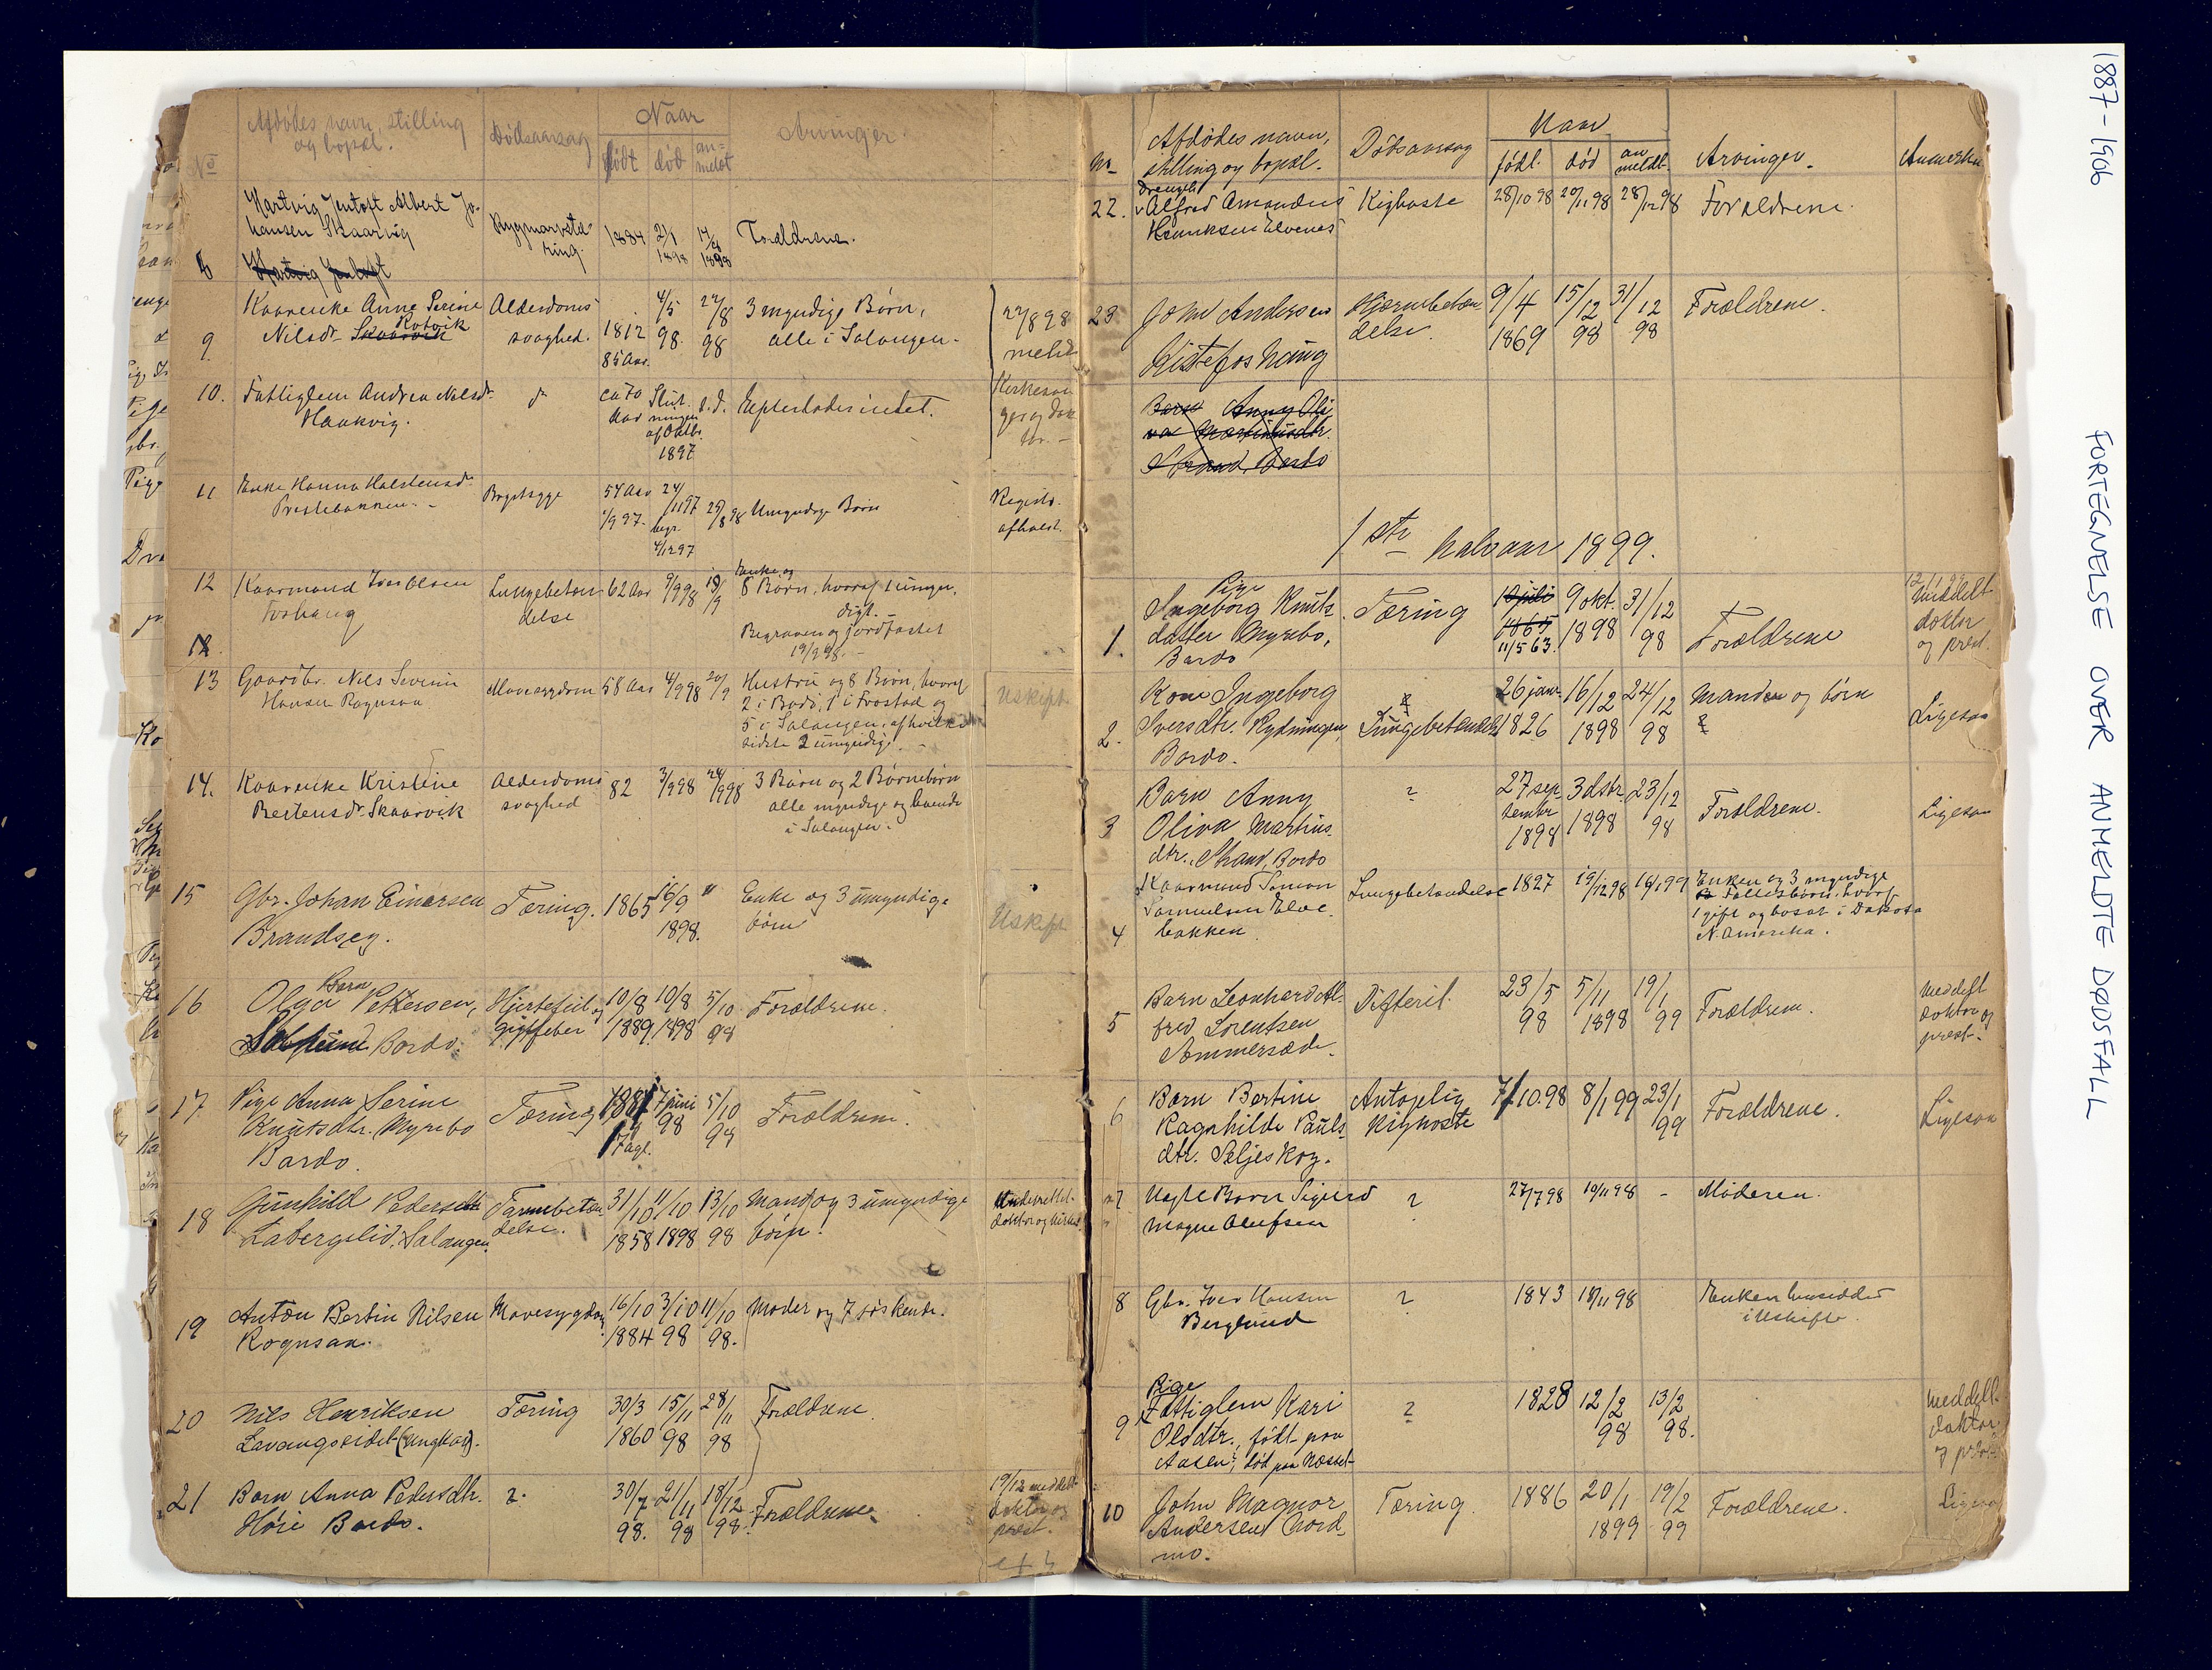 1887-1906 FORTEGNELSE OVER ANMELDTE DØDSFALL
No Afdødes navn, stilling og bopæl. Dødsaarsag Naar født død anmeldt Arvinger
8 Hartvig Jentoft Albert Johansen Skaarvig 1884 2/1 1898 1898 Forældrene.
Hartvig Jentoft
9 Kaarenke Anne Serine Nilsdr. Skaarvik Rotvik Alderdomssvaghed. 1812 85 Aar. 4/5 98 22/8 98 3 myndige Børn, alle i Salangen. 22/8 98 meldt
10. Fattiglem Andrea Nilsdr. Haakvig. ca 70 Aar Slutningen af Oktbr. 1897 d.d. Efterlod intet. Kirkesanger og doktor.
11 Enke Hanna Halstensdr. Prestebakken. Brystsyge 54 Aar 1/9 97. 24/11 97 begr. 4/12 97 25/8 98 Umyndige Børn Registr. afholdt.
12 Kaarmand Iver Olsen Lungebetændelse 62 Aar 9/9 98 19/9 Enke og 8 Børn, hvoraf 1 umyndigt. Begraven og jordfæstet 19/9 98.
13 Gaardbr. Nils Severin Hansen Rognsaa Mavesygdom 58 Aar 4/9 98 20/9 Hustru og 8 Børn, hvoraf 2 i Bodø, 1 i Trostad og 5 i Salangen, af hvilke sidste 2 umyndige. Uskift
14. Kaarenke Kristine Bertensdr. Skaarvik Alderdomssvaghed 82 3/9 98 24/9 98 3 Børn og 2 Børnebørn alle myndige og boende i Salangen.
15 Gbr. Johan Einarsen Brandseg. Tæring. 1865 16/9 1898. " Enke og 3 umyndige børn Uskift
16 Barn Olga Pettersen, Bardo. Hjertefeil og gigtfeber 10/8 1889. 10/8 1898 5/10 98 Forældrene.
17 Pige Anna Serine Knutsdtr. Myrebo Bardo. Tæring 1881 7 juni 98 5/10 98 Forældrene.
18 Gunhild Pedersdtr Laberglid, Salangen. Tarmebetændelse. 31/10 1858 11/10 1898 13/10 98 Mand og 3 umyndige børn. Underrettet doktor og kirkes.
19 Anton Bertin Nilsen Rognsaa. Mavesygdom 16/10 1884 3/10 98 11/10 98. Moder og 7 søskende.
20 Nils Henriksen Lavangseidet (ungkar). Tæring 30/3 1860 15/11 98 28/11 98 Forældrene.
21 Barn Anna Pedersdtr. Høie Bardo. ? 30/7 98. 21/11 98 18/12 98. Forældrene. 19/12 meddelt doktor og prest.
Nr Afdødes navn, stilling og bopæl. Dødsaarsag Naar født død anmeldt. Arvinger. Anmerkn.
22. Drengeb. Alfred Amandus Henriksen Elvenes Kighoste 28/10 98 20/11 98 28/12 98 Forældrene.
23 John Andersen Kistefoshaug Hjernebetændelse. 9/4 1869 15/12 98 31/12 98 Forældrene.
Barn Anny Oliva Martinusdtr. Strand, Bardo
1ste halvaar 1899.
1. Pige Ingeborg Knutsdatter Myrebo, Bardo Tæring 10 juli 1865 11/5 63. 9 okt. 1898 31/12 98 Forældrene meddelt doktor og prest.
2. Kone Ingeborg Iversdtr. Rydningen, Bardo. Lungebetændelse 26 janr. 1826 16/12 1898 24/12 98 Manden og børn ? Ligesaa
3 Barn Anny Oliva Martinsdtr. Strand, Bardo ? 27 september 1898 3 dsbr. 1898 23/12 98 Forældrene. Ligesaa
4 Kaarmand Simon Samuelsen Elvebakken Lungebetændelse 1827 19/12 98 16/1 99 Enken og 3 myndige Fællesbørn, hvoraf 1 gift og bosat i Dakota N. Amerika.
5 Barn Leonhard Alfred Lorentsen Sommersæde. Difterit. 23/5 98 5/11 1898 19/1 99 Forældrene. Meddelt doktor og prest.
6 Barn Bertine Ragnhilde Paulsdtr. Seljeskog. Antagelig Kighoste 7/10.98 8/1 99 23/1 99 Forældrene. Ligesaa
7 Uægte Barn Sigurd Magne Olufsen ? 27/7 98 19/11 98 - Moderen.
8 Gbr. Iver Hansen Berglund ? 1843 18/11 98 Enken hensidder i Uskifte.
9 Pige Fattiglem Kari Olsdtr., født paa Aasen, død paa ? 1828 12/2 98 13/2 98. meddelt doktor og prest
10 John Magnor Andersen Nordmo. Tæring 1886 20/1 1899 19/2 99 Forældrene. Ligesaa